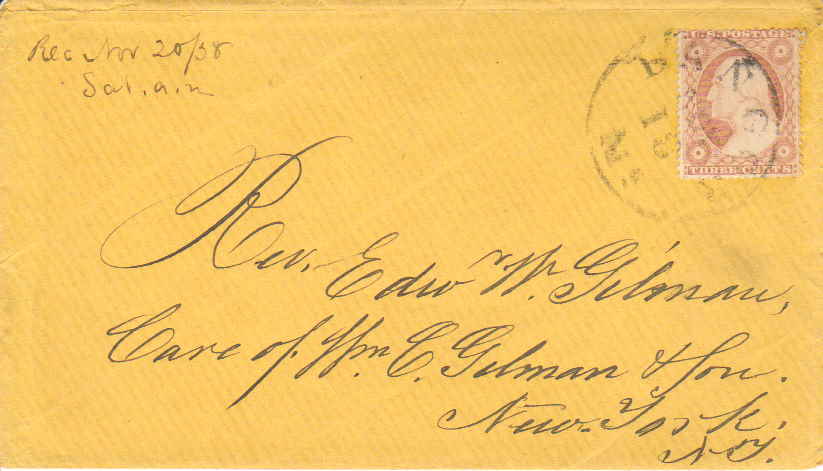 Rec Nov 20/58
Sat. a.m
U.S. POSTAGE
THREE CENTS
Rev. Edw W. Gilman,
Care of. Wm C. Gilman & Son.
New-York.
N.Y.